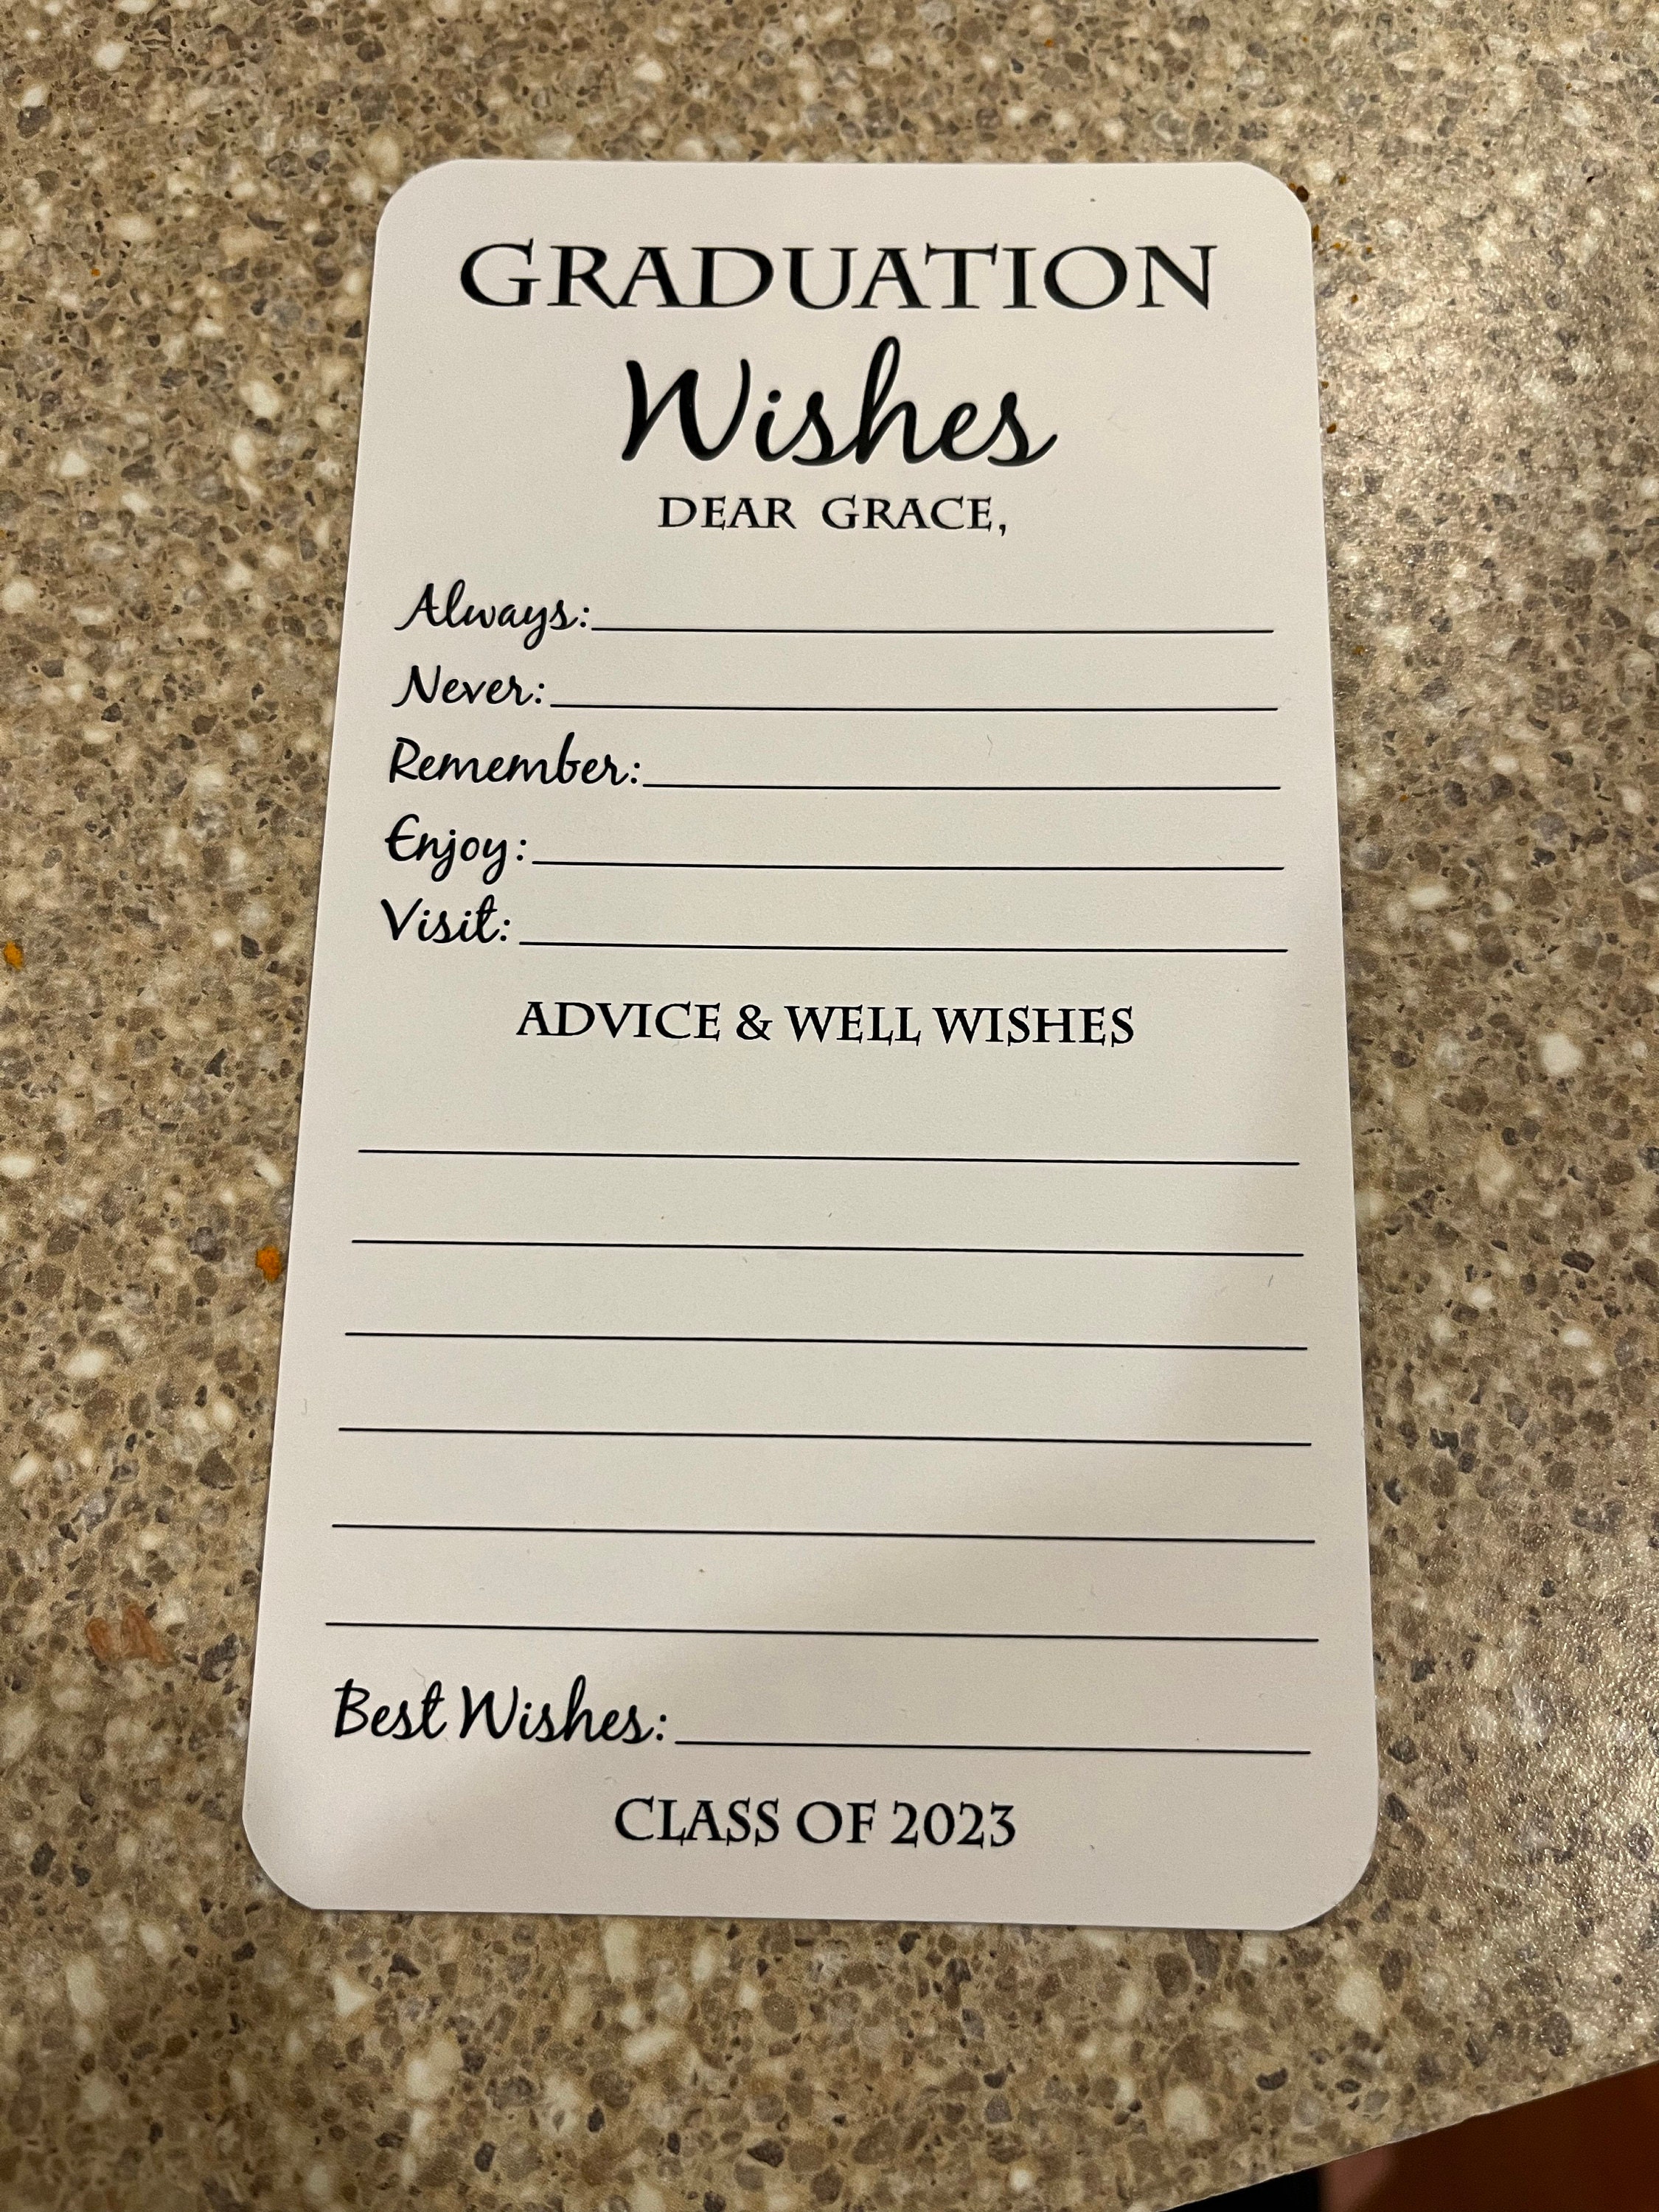 GRADUATION
Wishes
DEAR GRACE,
Always:
Never:
Remember:
Enjoy:
Visit:
ADVICE & WELL WISHES
Best Wishes:
CLASS OF 2023